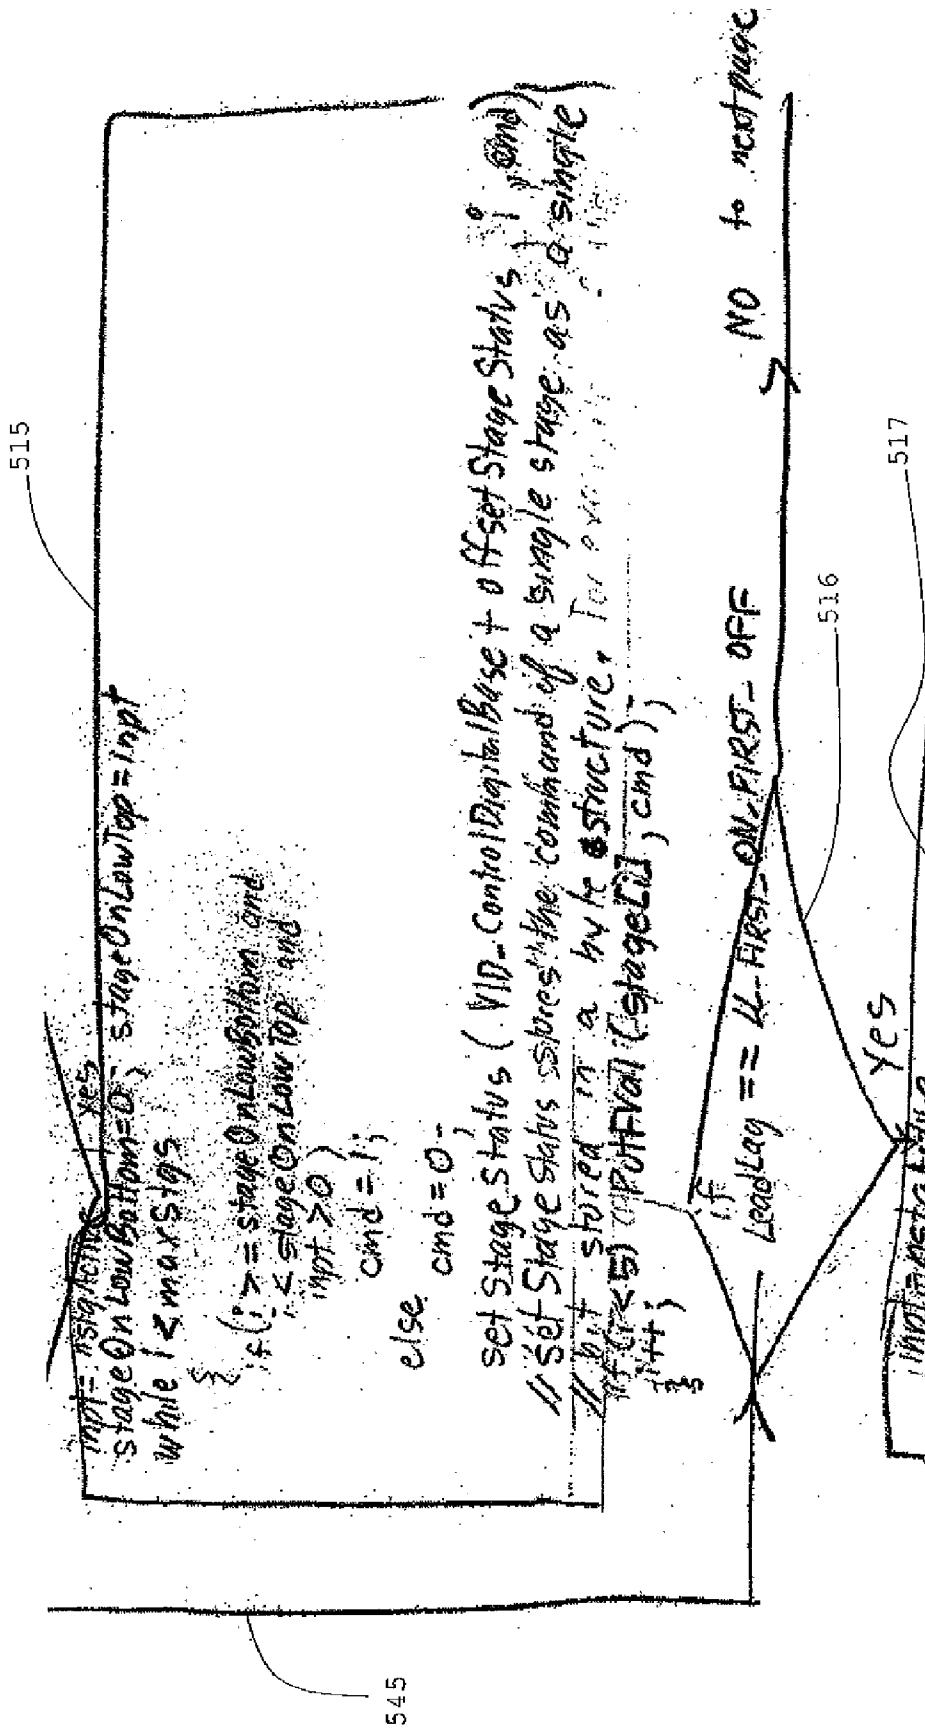 515
inpt = nstgActive Yes
stageOnLowBottom=0; stageOnLowTop=inpt
while i < maxStgs
{
if(i >= stageOnLowBottom and
i < stageOnLowTop and
inpt >0)
cmd=1;
else
cmd=0;
set Stage status ( VID_ControlDigitalBase + offsetStageStatus + i, cmd)
// Set Stage status stores the command of a single stage as a single
// bit stored in a byte structure. For example
if (i<5) PutFVal (stage[i], cmd);
i++;
}
545
if
LeadLag == LL_FIRST_ON_FIRST_OFF
NO to next page
516
Yes
517